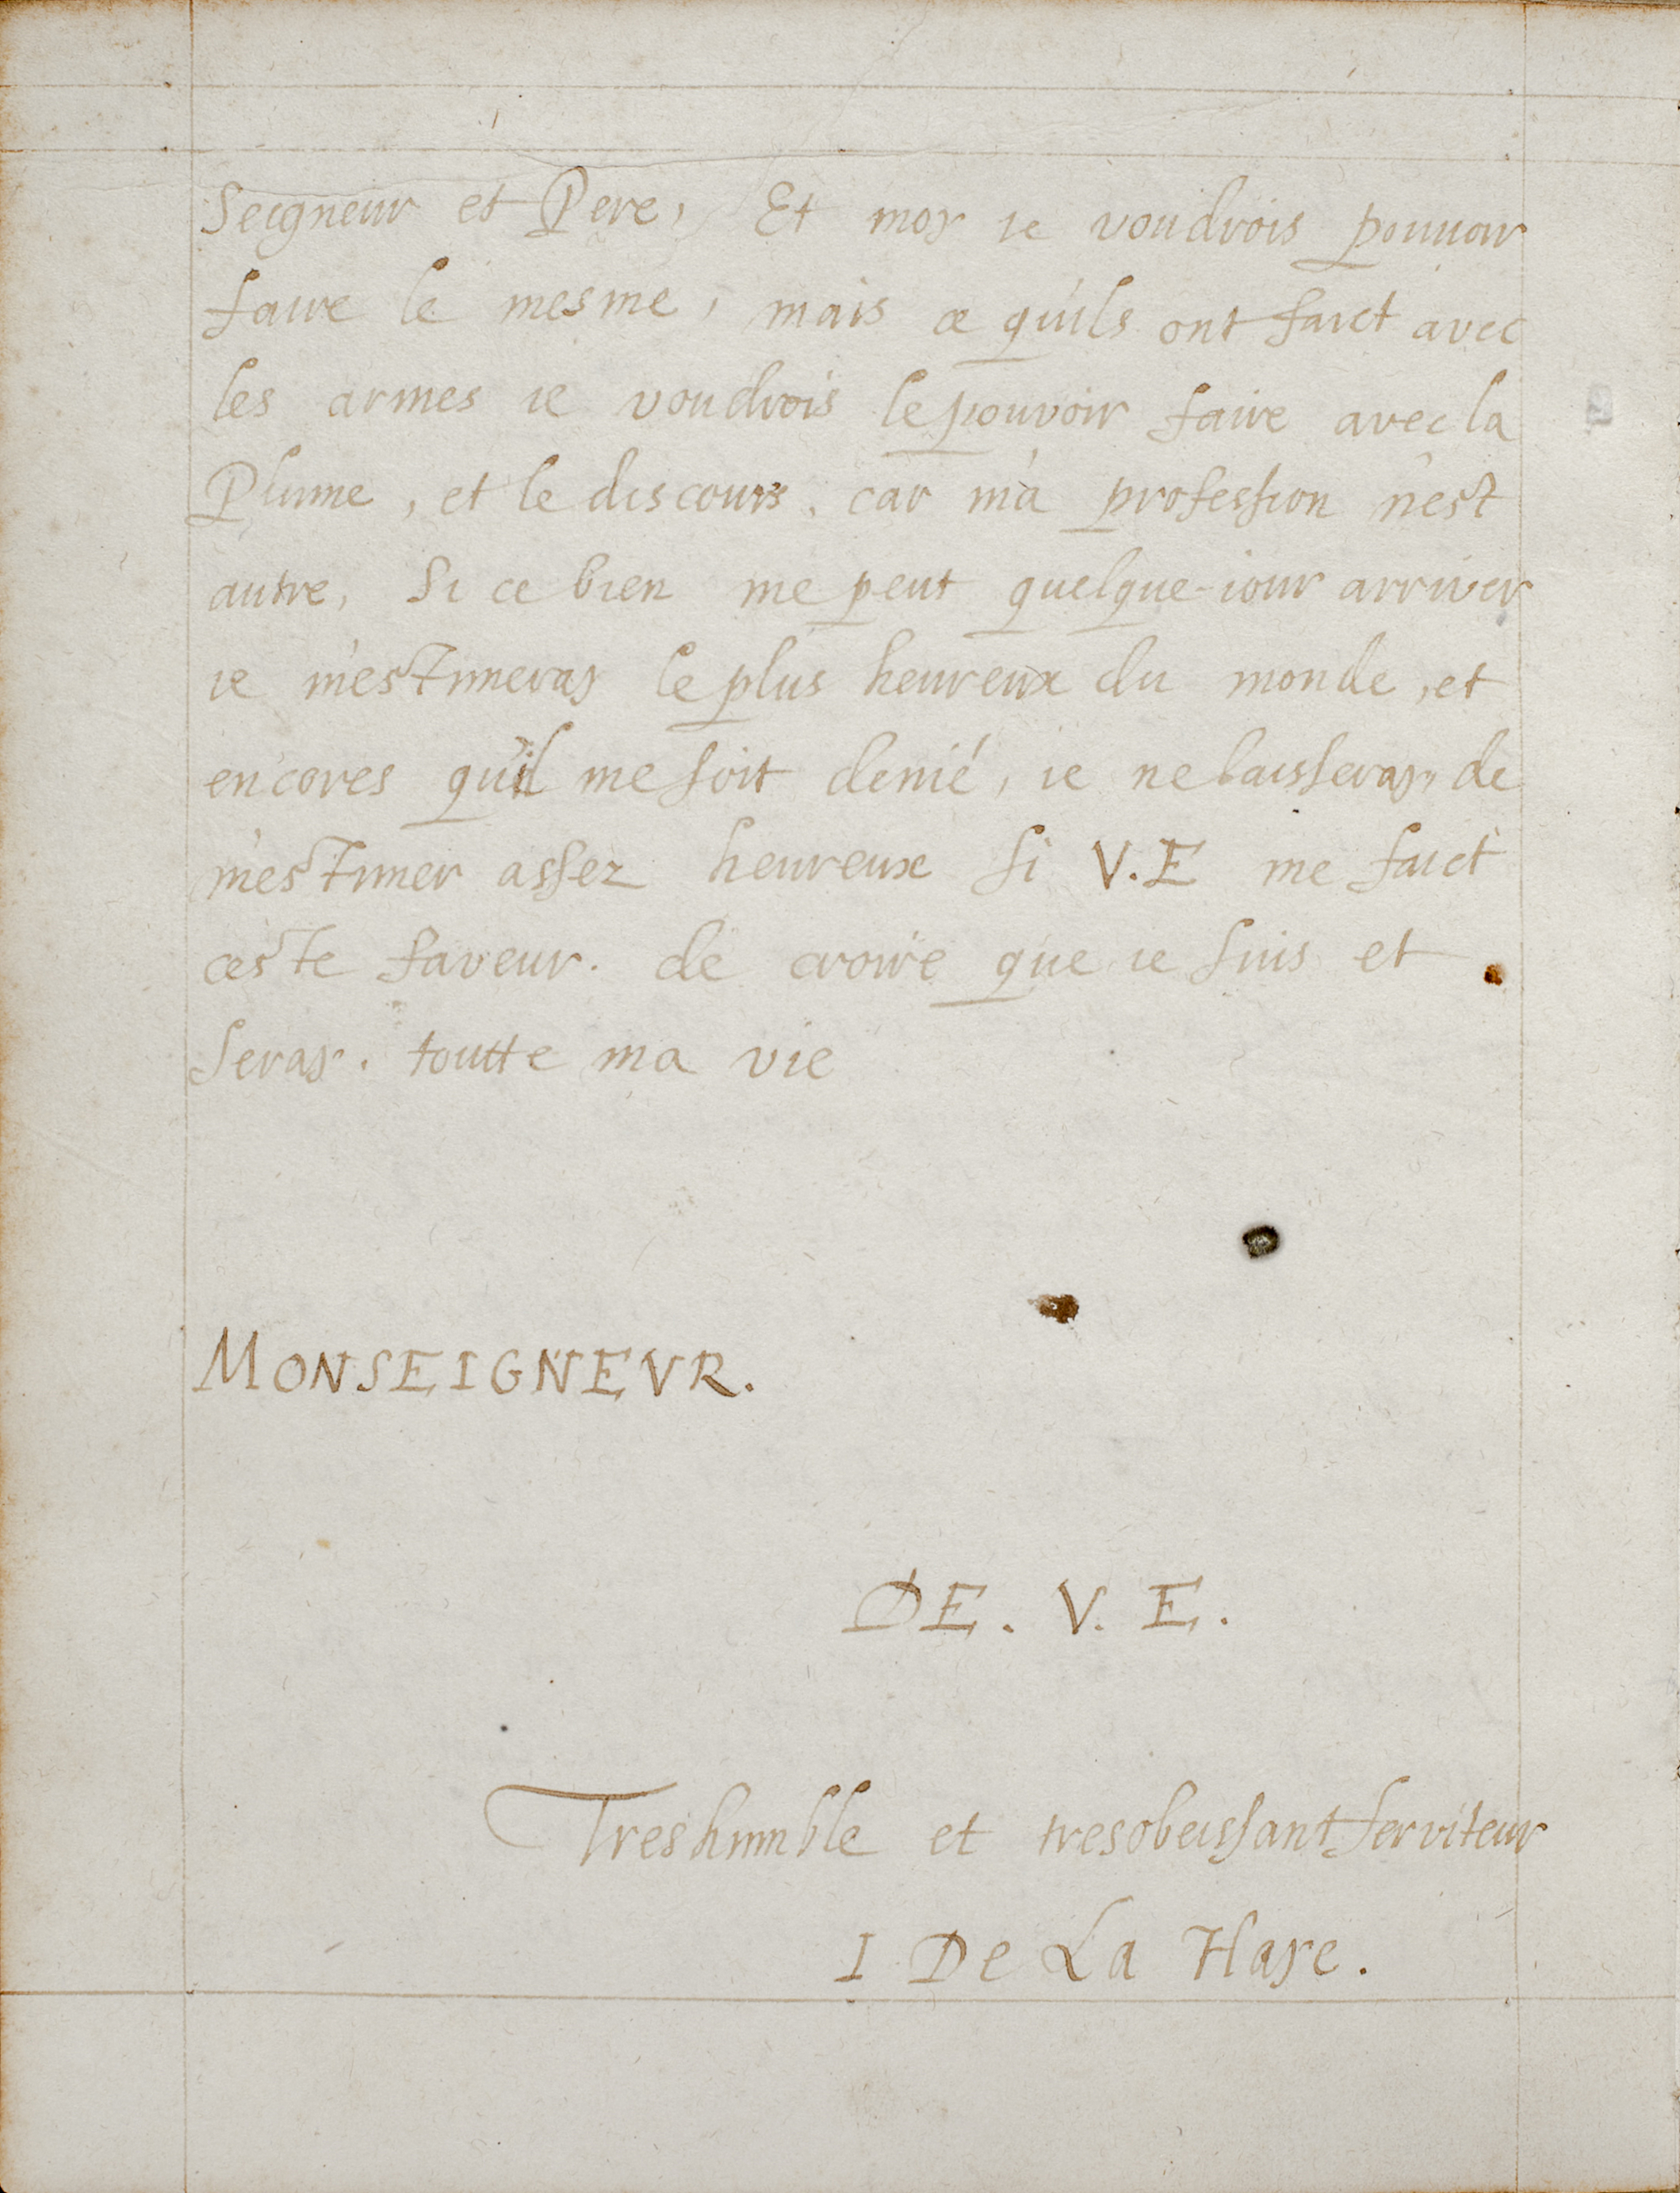 Seigneur et Pere, Et moy ie voudrois pouuoir
faire le mesme, mais ce qu'ils ont faict avec
les armes ie voudrois le pouvoir faire avec la
Plume, et le discours. car m'a profession n'est
autre, Si ce bien me peut quelque-iour arriver
ie m'estimeray le plus heureux du monde, et
encores qu'il me soit denié, ie ne laisseray, de
m'estimer assez heureux si V.E me faict
ceste faveur. de croire que ie suis et
seray. toutte ma vie
MONSEIGNEVR.
DE. V. E.
Treshumble et tresobeissant serviteur
I De La Haye.